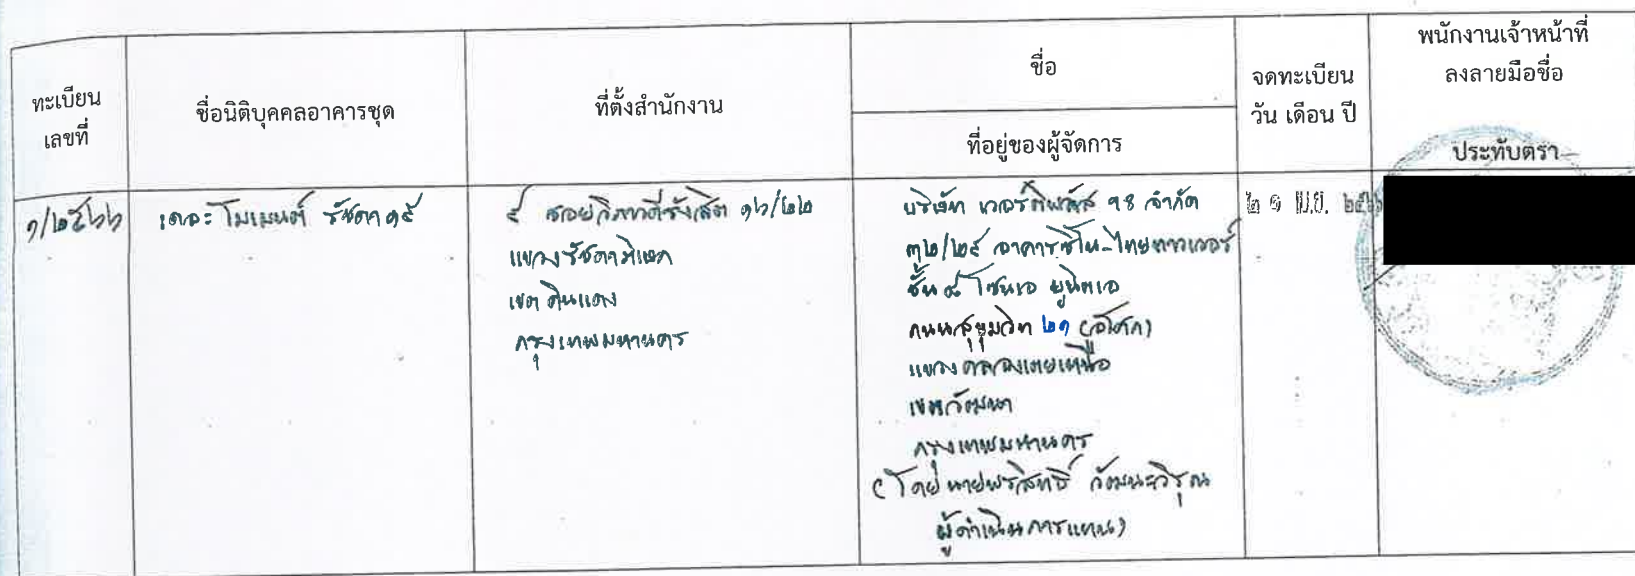 ทะเบียน
เลขที่
ชื่อนิติบุคคลอาคารชุด
ที่ตั้งสำนักงาน
ชื่อ
ที่อยู่ของผู้จัดการ
จดทะเบียน
วัน เดือน ปี
พนักงานเจ้าหน้าที่
ลงลายมือชื่อ
ประทับตรา
๑/๒๕๖๖
เดอะ โมเมนต์ รัชดา ๑๙
๙ ซอยวิภาวดีรังสิต ๑๖/๒๒
แขวงรัชดาภิเษก
เขตดินแดง
กรุงเทพมหานคร
บริษัท เวอร์ทิพลัส 98 จำกัด
๓๒/๒๙ อาคารซิโน-ไทยทาวเวอร์
ชั้น ๙ โซนเอ ยูนิตเอ
ถนนสุขุมวิท ๒๑ (อโศก)
แขวงคลองเตยเหนือ
เขตวัฒนา
กรุงเทพมหานคร
(โดย นายพรสิทธิ์
ผู้ดำเนินการแทน)
๒ ๑ เม.ย.